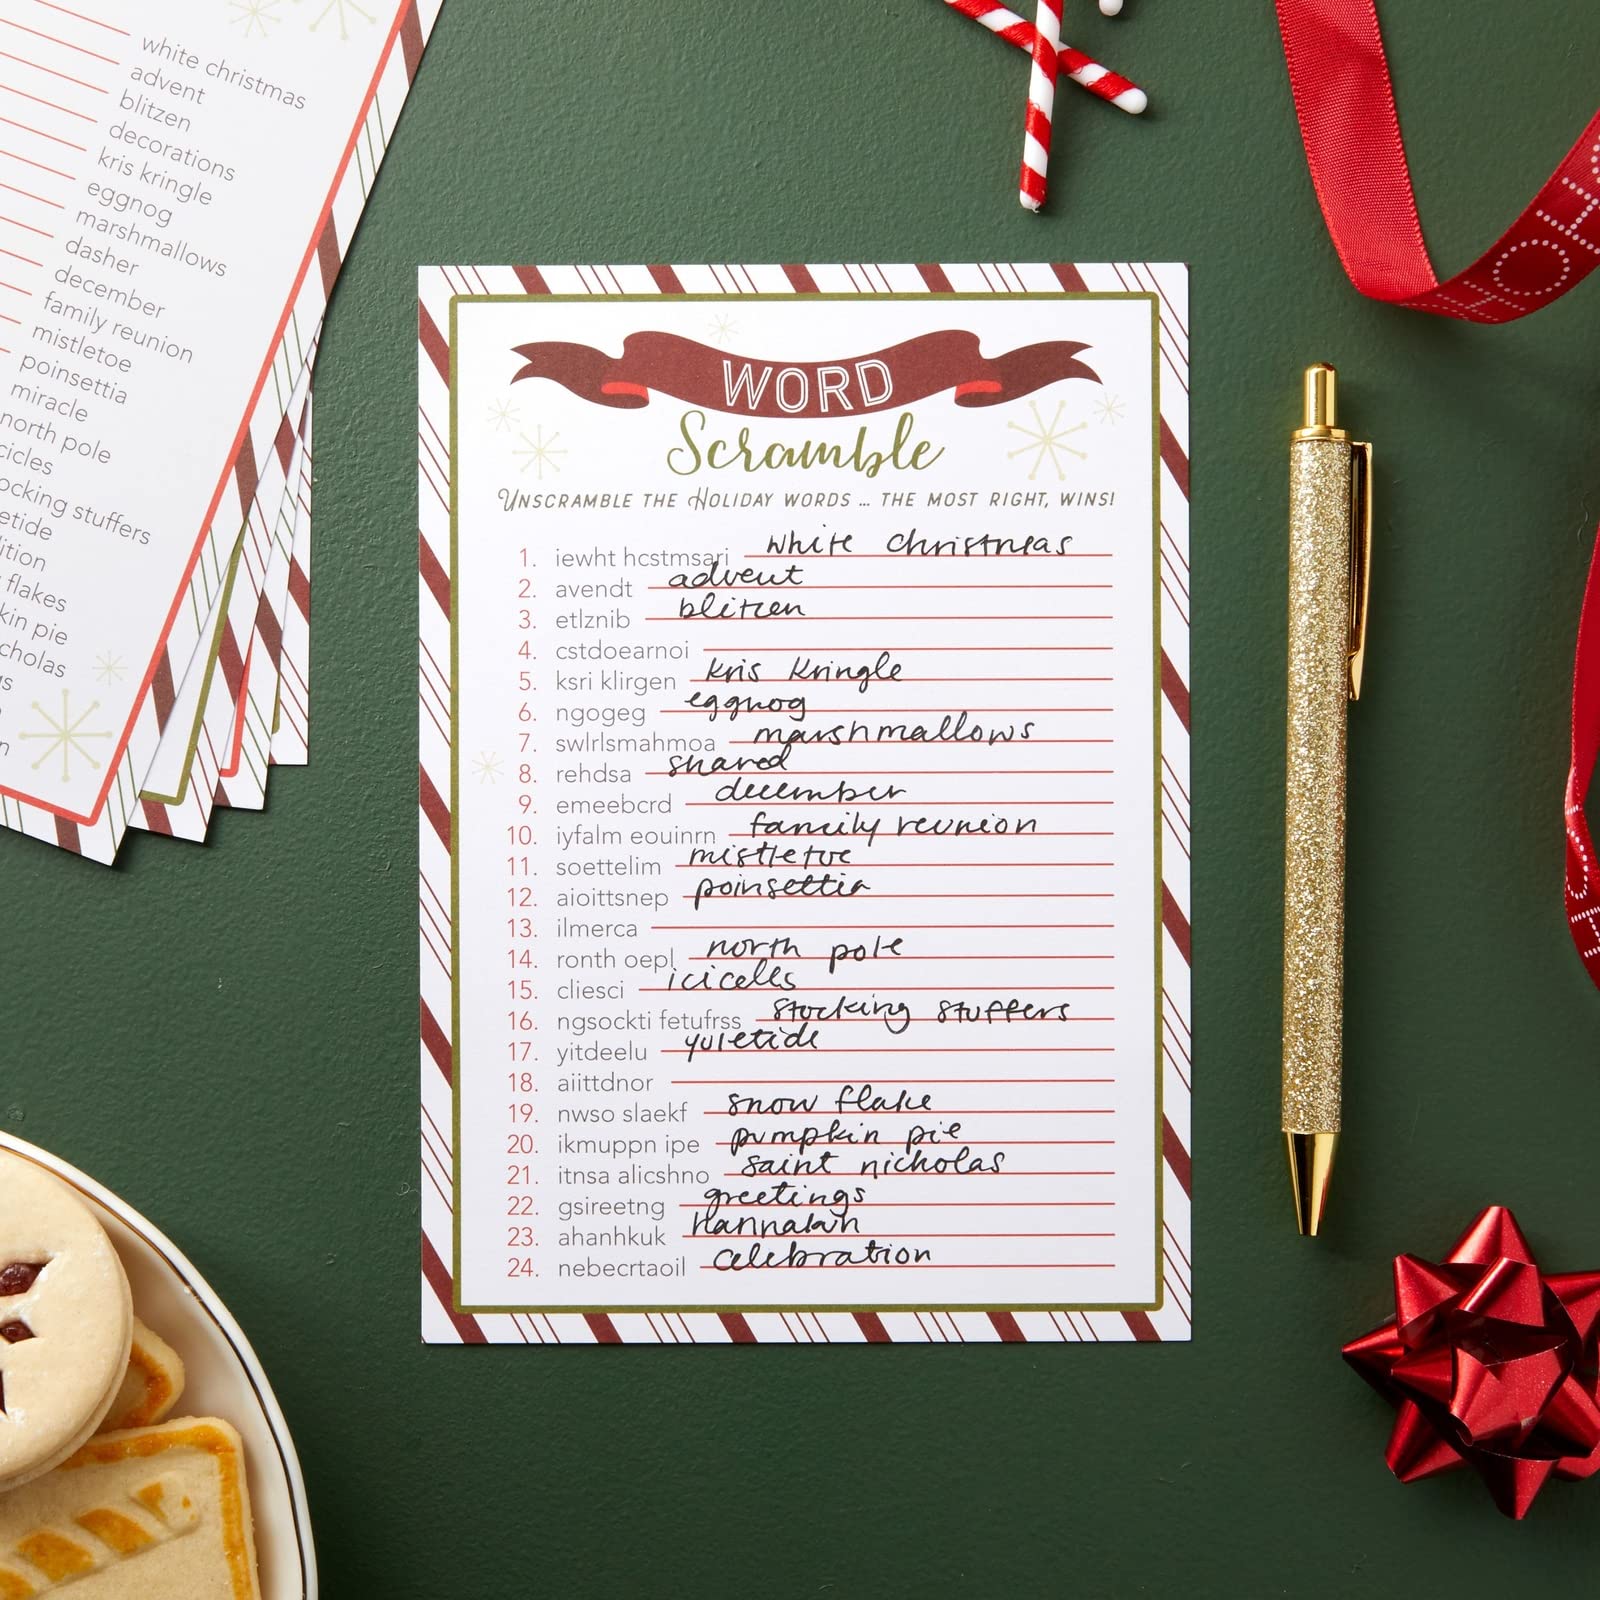 white christmas
advent
blitzen
decorations
kris kringle
eggnog
marshmallows
dasher
december
family reunion
mistletoe
poinsettia
miracle
north pole
cicles
ocking stuffers
etide
ition
flakes
kin pie
cholas
WORD
Scramble
UNSCRAMBLE THE HOLIDAY WORDS ... THE MOST RIGHT, WINS!
1. iewht hcstmsari white christmas
2. avendt advent
3. etlznib blitzen
4. cstdoearnoi
5. ksri klirgen kris kringle
6. ngogeg eggnog
7. swlrlsmahmoa marshmallows
8. rehdsa shared
9. emeebcrd december
10. iyfalm eouinrn family reunion
11. soettelim mistletoe
12. aioittsnep poinsettia
13. ilmerca
14. ronth oepl north pole
15. cliesci icicells
16. ngsockti fetufrss stocking stuffers
17. yitdeelu yuletide
18. aiittdnor
19. nwso slaekf snow flake
20. ikmuppn ipe pumpkin pie
21. itnsa alicshno saint nicholas
22. gsireetng greetings
23. ahanhkuk
24. nebecrtaoil celebration